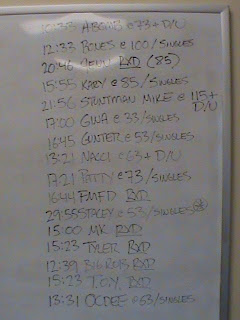 10:33 ABOMB @ 73 + D/U
12:33 BONES @ 100/SINGLES
20:46 RXD (85)
15:55 KARY @ 85/SINGLES
21:56 STUNTMAN MIKE @ 115 + D/U
17:00 GINA @ 33/SINGLES
16:45 GUNTER @ 53/SINGLES
13:21 NACCI @ 63 + D/U
17:21 PATTY @ 73/SINGLES
16:44 FMFD RXD
29:55 STACEY @ 53/SINGLES
15:00 MK RXD
15:23 TYLER RXD
12:39 BIG ROB RXD
15:23 TONY RXD
13:31 OCDEE @ 63/SINGLES